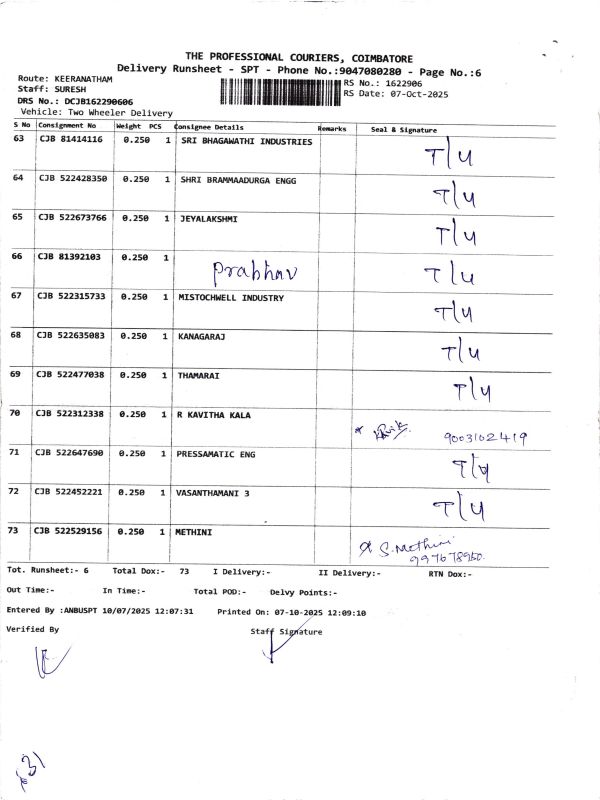 THE PROFESSIONAL COURIERS, COIMBATORE
Delivery Runsheet - SPT - Phone No.:9047080280 - Page No.:6
Route: KEERANATHAM
RS No.: 1622906
Staff: SURESH
RS Date: 07-Oct-2025
DRS No.: DCJB162290606
Vehicle: Two Wheeler Delivery
S No Consignment No Weight PCS Consignee Details Remarks Seal & Signature
63 CJB 81414116 0.250 1 SRI BHAGAWATHI INDUSTRIES T/4
64 CJB 522428350 0.250 1 SHRI BRAMMAADURGA ENGG T/4
65 CJB 522673766 0.250 1 JEYALAKSHMI T/4
66 CJB 81392103 0.250 1 Prabhav T/4
67 CJB 522315733 0.250 1 MISTOCHWELL INDUSTRY T/4
68 CJB 522635083 0.250 1 KANAGARAJ T/4
69 CJB 522477038 0.250 1 THAMARAI T/4
70 CJB 522312338 0.250 1 R KAVITHA KALA 9003102419
71 CJB 522647690 0.250 1 PRESSAMATIC ENG T/4
72 CJB 522452221 0.250 1 VASANTHAMANI 3 T/4
73 CJB 522529156 0.250 1 METHINI S. Methini
997678950.
Tot. Runsheet:- 6 Total Dox:- 73 I Delivery:- II Delivery:- RTN Dox:-
Out Time:- In Time:- Total POD:- Delvy Points:-
Entered By :ANBUSPT 10/07/2025 12:07:31 Printed On: 07-10-2025 12:09:10
Verified By Staff Signature